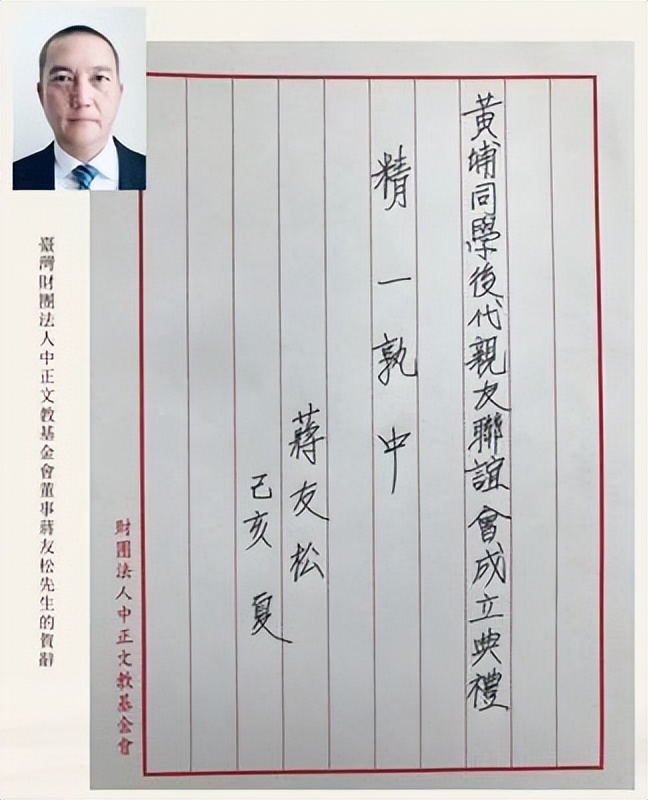 黃埔同學後代親友聯誼會成立典禮
精一孰中
蔣友松
己亥 夏
財團法人中正文教基金會
臺灣財團法人中正文教基金會董事蔣友松先生的賀辭